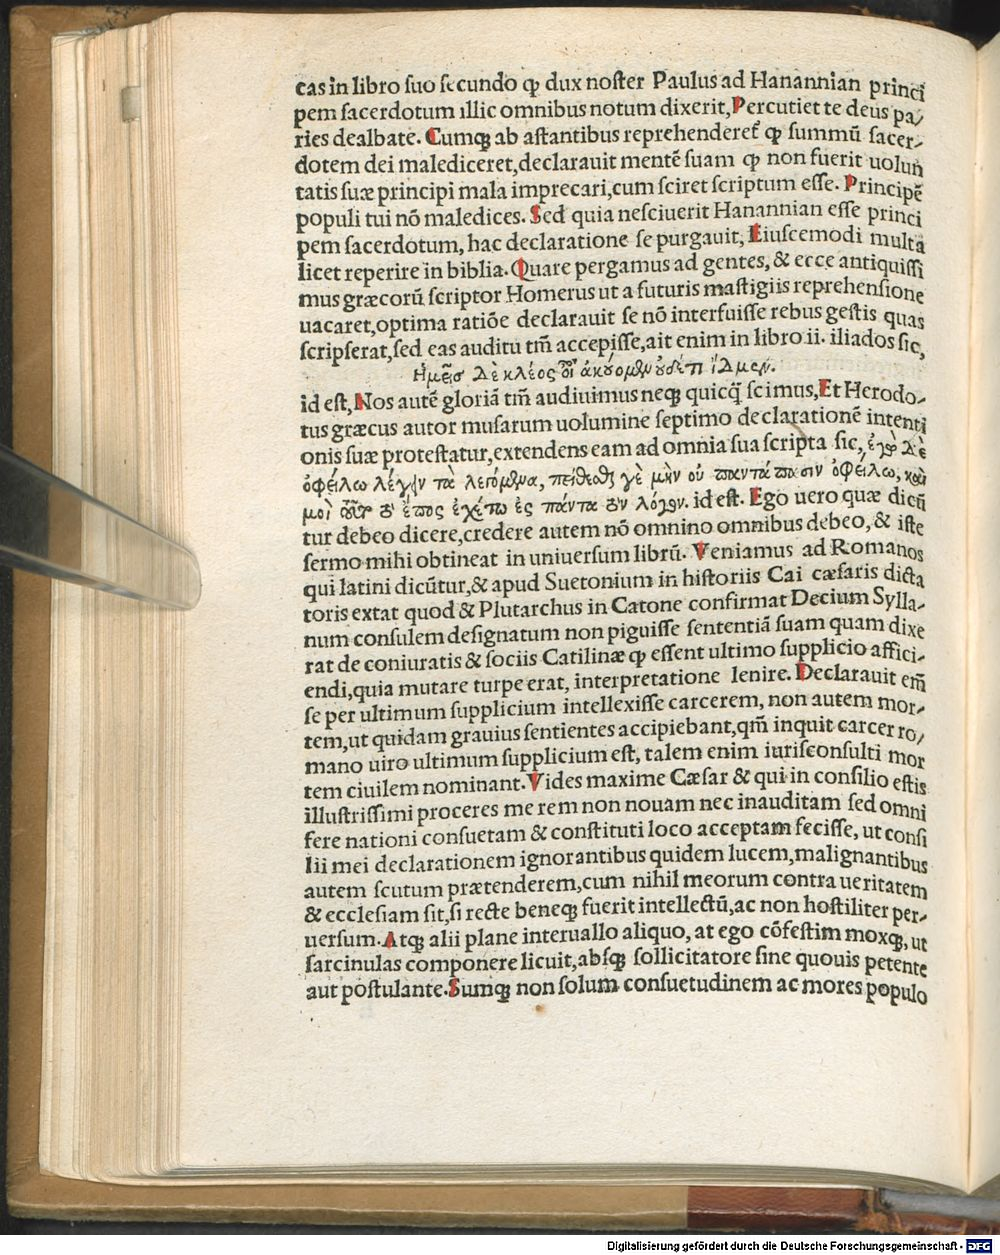 cas in libro suo secundo ꝙ dux noster Paulus ad Hanannian princi
pem sacerdotum illic omnibus notum dixerit, Percutiet te deus pa/
ries dealbate. Cumqꝫ ab astantibus reprehenderet᷑ ꝙ summū sacer-
dotem dei malediceret, declarauit mentē suam ꝙ non fuerit uolun
tatis suæ principi mala imprecari, cum sciret scriptum esse. Principē
populi tui nō maledices. Sed quia nesciuerit Hanannian esse princi
pem sacerdotum, hac declaratione se purgauit, Eiuscemodi multa
licet reperire in biblia. Quare pergamus ad gentes, & ecce antiquissi
mus græcorū scriptor Homerus ut a futuris mastigiis reprehensione
uacaret, optima ratiōe declarauit se nō interfuisse rebus gestis quas
scripserat, sed eas auditu tm̄ accepisse, ait enim in libro ii. iliados sic,
Ἡμεῖσ δὲ κλέος οἶ ἀκούομεν ουδέτι ἴδμεν.
id est, Nos autē gloriā tm̄ audiuimus neqꝫ quicq̄ scimus, Et Herodo-
tus græcus autor musarum uolumine septimo declarationē intenti
onis suæ protestatur, extendens eam ad omnia sua scripta sic, ἐγὼ δὲ
ὀφείλω λέγειν τὰ λεγόμενα, πείθεσθαι γὲ μὴν οὐ παντάπασιν ὀφείλω, καὶ
μοὶ τοῦτο τὸ ἔπος ἐχέτω ἐς πάντα τὸν λόγον. id est. Ego uero quæ dicū
tur debeo dicere, credere autem nō omnino omnibus debeo, & iste
sermo mihi obtineat in uniuersum librū. Veniamus ad Romanos
qui latini dicūtur, & apud Suetonium in historiis Cai cæsaris dicta
toris extat quod & Plutarchus in Catone confirmat Decium Sylla-
num consulem designatum non piguisse sententiā suam quam dixe
rat de coniuratis & sociis Catilinæ ꝙ essent ultimo supplicio affici-
endi, quia mutare turpe erat, interpretatione lenire. Declarauit em̄
se per ultimum supplicium intellexisse carcerem, non autem mor-
tem, ut quidam grauius sentientes accipiebant, qm̄ inquit carcer ro/
mano uiro ultimum supplicium est, talem enim iurisconsulti mor
tem ciuilem nominant. Vides maxime Cæsar & qui in consilio estis
illustrissimi proceres me rem non nouam nec inauditam sed omni
fere nationi consuetam & constituti loco acceptam fecisse, ut consi
lii mei declarationem ignorantibus quidem lucem, malignantibus
autem scutum prætenderem, cum nihil meorum contra ueritatem
& ecclesiam sit, si recte beneqꝫ fuerit intellectū, ac non hostiliter per-
uersum. Atqꝫ alii plane interuallo aliquo, at ego cōfestim moxqꝫ, ut
sarcinulas componere licuit, absqꝫ sollicitatore sine quouis petente
aut postulante. Sumqꝫ non solum consuetudinem ac mores populo
Digitalisierung gefördert durch die Deutsche Forschungsgemeinschaft - DFG